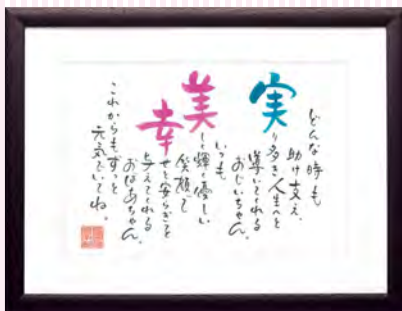 どんな時も
助け支え、
実り多き人生へと
導いてくれる
おじいちゃん。
いつも
美しく輝く優しい
笑顔で
幸せと安らぎを
与えてくれる
おばあちゃん。
これからもずっと
元気でいてね。